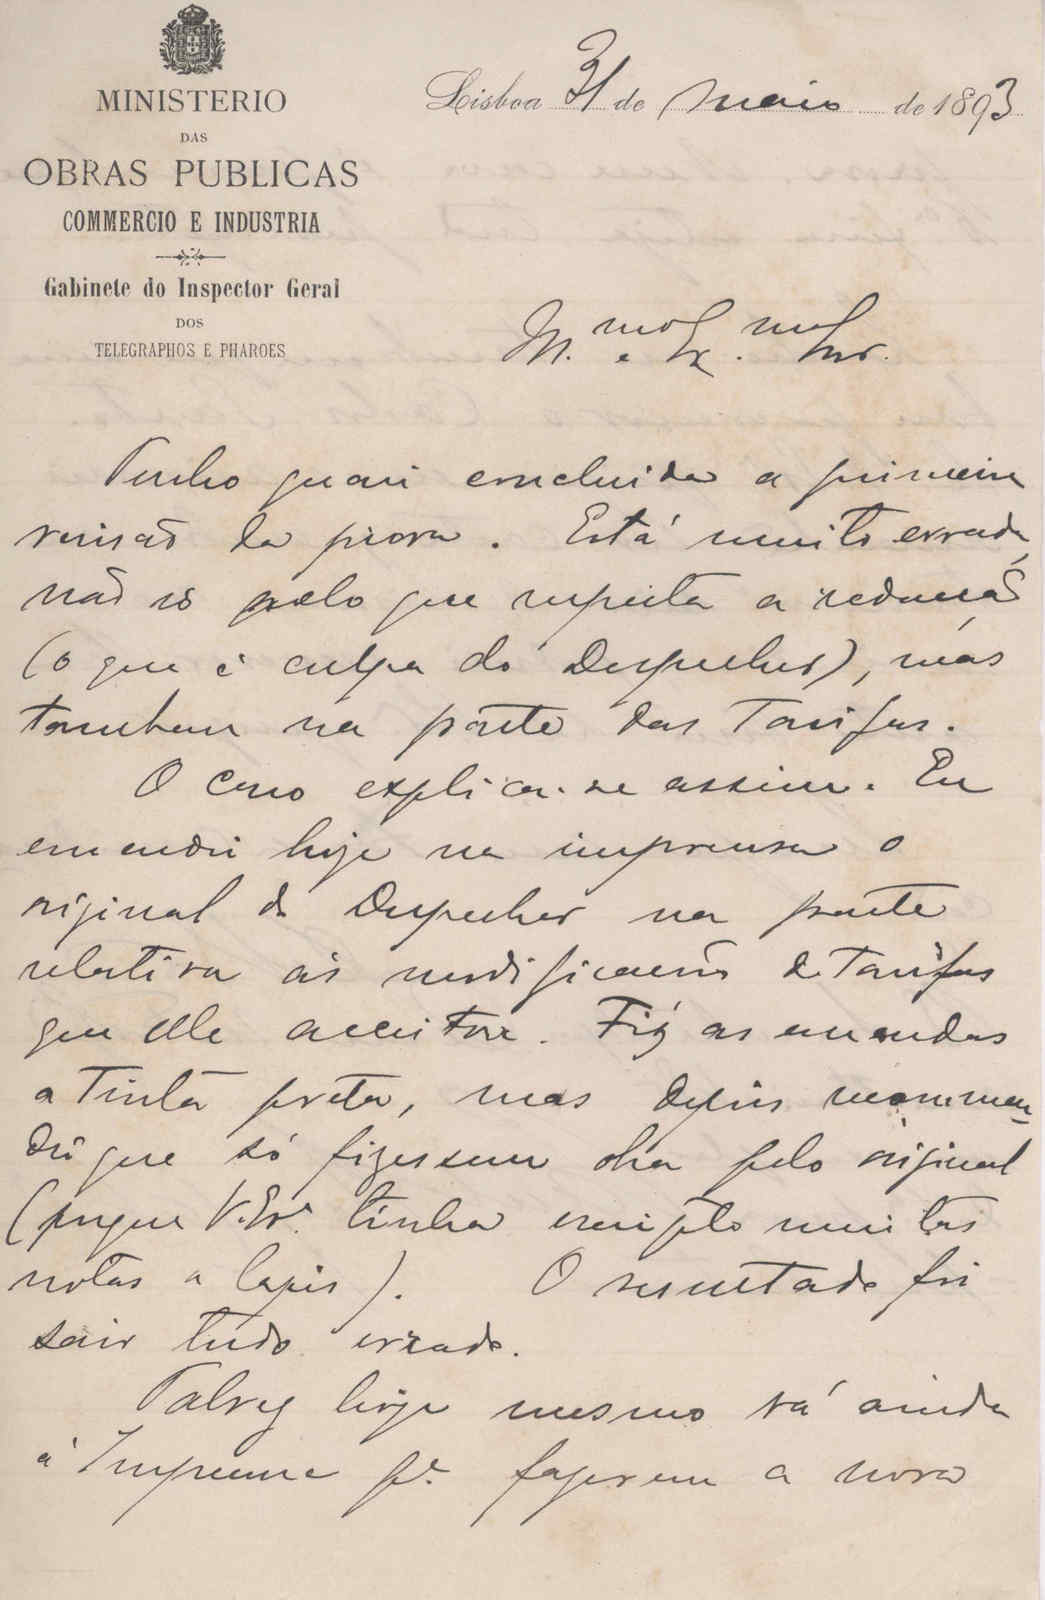 MINISTERIO
DAS
OBRAS PUBLICAS
COMMERCIO E INDUSTRIA
Gabinete do Inspector Geral
DOS
TELEGRAPHOS E PHAROES
Lisboa 31 de maio de 1893
Ill.mo e Ex.mo Snr.
Tenho quasi concluida a primeira
revisão da prova. Está muito errada,
não só pelo que respeita a redacção
(o que é culpa do Despecher), mas
tambem na parte das Tarifas.
O caso explica-se assim. Eu
emendei hoje na imprensa o
original do Despecher na parte
relativa ás modificações de Tarifas
que elle aceitou. Fiz as emendas
a Tinta preta, mas depois recommen-
dei que só fizessem obra pelo original
(porque V. Ex.ª tinha escripto muitas
notas a lapis). O resultado foi
sair tudo errado.
Talvez hoje mesmo vá ainda
á Imprensa p.ª fazerem a nova